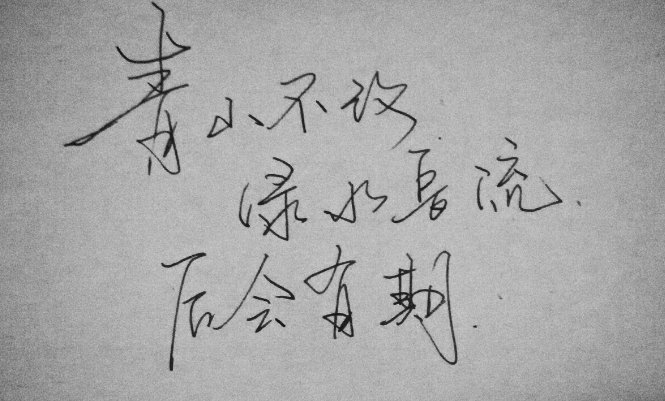 青山不改
绿水流.
后会有期.